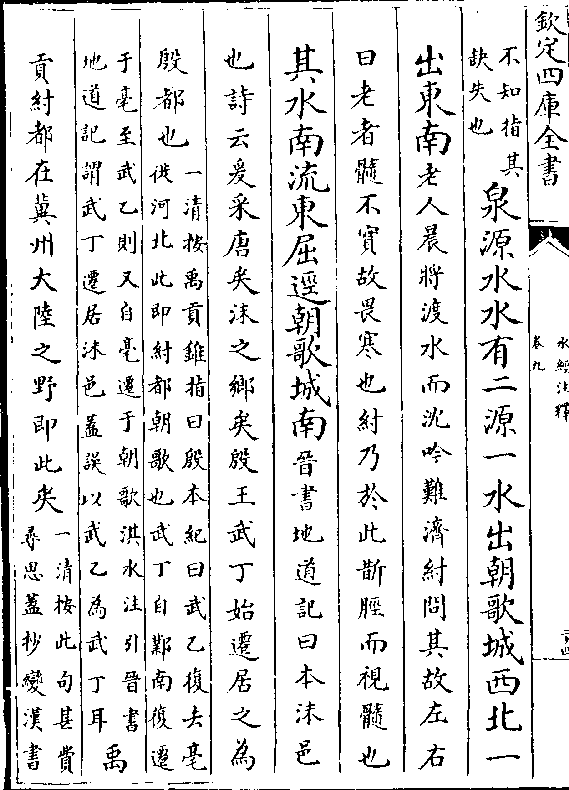 欽定四庫全書
水經注釋
卷九
不知指其
缺失也
泉源水水有二源一水出朝歌城西北一
出東南老人晨將渡水而沈吟難濟紂問其故左右
曰老者髓不實故畏寒也紂乃於此斮脛而視髓也
其水南流東屈逕朝歌城南晉書地道記曰本沬邑
也詩云爰采唐矣沬之鄉矣殷王武丁始遷居之為
殷都也
一清按禹貢錐指曰殷本紀曰武乙復去亳
徙河北此即紂都朝歌也武丁自鄴南復遷
于亳至武乙則又自亳遷于朝歌淇水注引晉書
地道記謂武丁遷居沬邑蓋誤以武乙為武丁耳
禹
貢紂都在冀州大陸之野即此矣
一清按此句甚費
尋思蓋抄變漢書